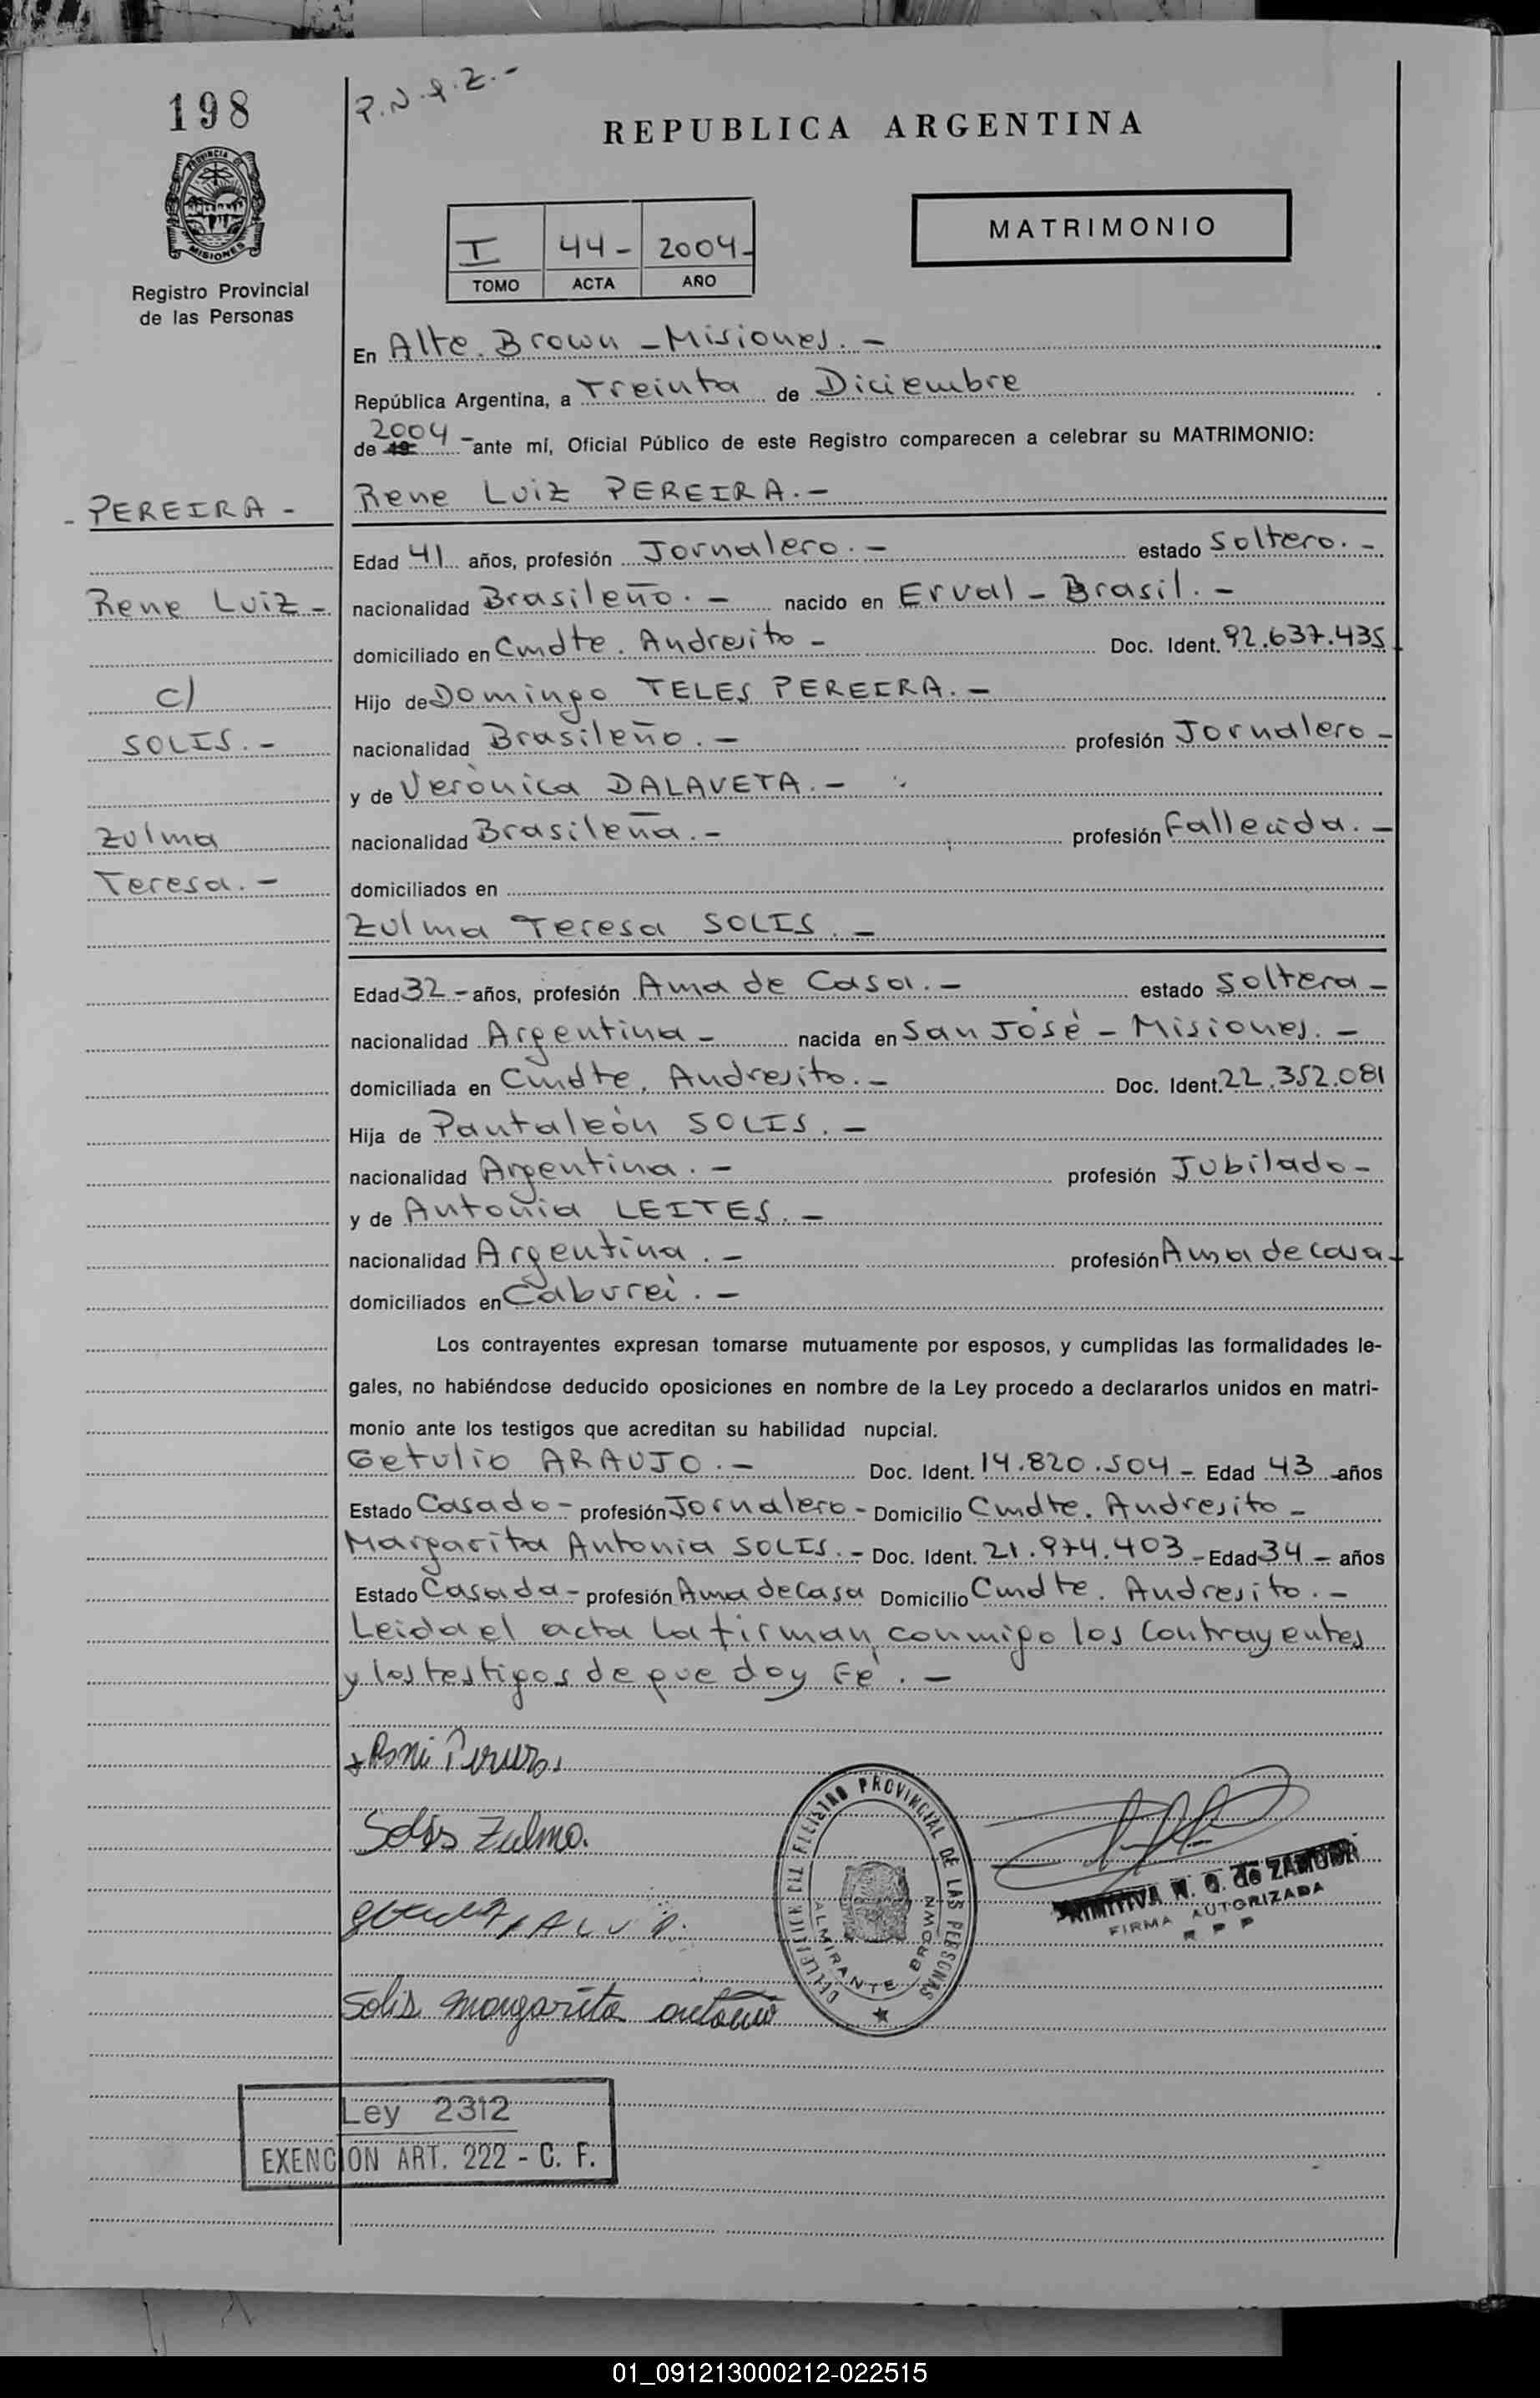 198
P.N.Q.Z.-
REPUBLICA ARGENTINA
PROVINCIA DE
MISIONES
Registro Provincial
de las Personas
I 44- 2004-
TOMO ACTA AÑO
MATRIMONIO
En Alte. Brown - Misiones. -
República Argentina, a Treinta de Diciembre
de 19 2004 - ante mí, Oficial Público de este Registro comparecen a celebrar su MATRIMONIO:
- PEREIRA -
Rene Luiz -
c/
SOLIS. -
Zulma
Teresa. -
Rene Luiz PEREIRA. -
Edad 41 años, profesión Jornalero. - estado Soltero. -
nacionalidad Brasileño. - nacido en Erval - Brasil. -
domiciliado en Cmdte. Andresito - Doc. Ident. 92.637.435
Hijo de Domingo TELES PEREIRA. -
nacionalidad Brasileño. - profesión Jornalero -
y de Verònica DALAVETA. -
nacionalidad Brasileña. - profesión Fallecida. -
domiciliados en
Zulma Teresa SOLIS. -
Edad 32 - años, profesión Ama de Casa. - estado Soltera -
nacionalidad Argentina - nacida en San José - Misiones. -
domiciliada en Cmdte. Andresito. - Doc. Ident. 22.352.081
Hija de Pantaleòn SOLIS. -
nacionalidad Argentina. - profesión Jubilado -
y de Antonia LEITES. -
nacionalidad Argentina. - profesión Ama de casa -
domiciliados en Caburei. -
Los contrayentes expresan tomarse mutuamente por esposos, y cumplidas las formalidades le-
gales, no habiéndose deducido oposiciones en nombre de la Ley procedo a declararlos unidos en matri-
monio ante los testigos que acreditan su habilidad nupcial.
Getulio ARAUJO. - Doc. Ident. 14.820.504 - Edad 43 - años
Estado Casado - profesión Jornalero - Domicilio Cmdte. Andresito -
Margarita Antonia SOLIS. - Doc. Ident. 21.974.403 - Edad 34 - años
Estado Casada - profesión Ama de Casa Domicilio Cmdte. Andresito. -
Leida el acta la firman, conmigo los Contrayentes
y los testigos de que doy Fé. -
Solis Zulma.
Solis Margarita antonia
REGISTRO PROVINCIAL DE LAS PERSONAS
ALMIRANTE BROWN
PRIMITIVA N. Q. de ZAMUDIA
FIRMA AUTORIZADA
R P P
Ley 2312
EXENCION ART. 222 - C. F.
01_091213000212-022515